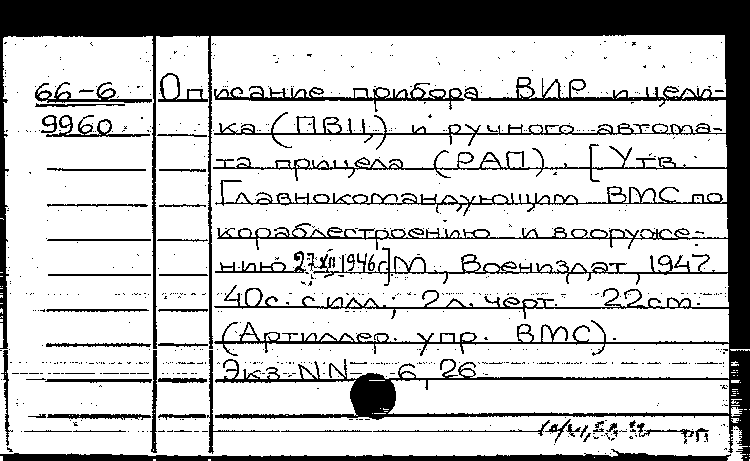 66-6 Описание прибора ВИР и цели-
9960 ка (ПВЦ) и ручного автома-
та прицела (РАП). [Утв.
Главнокомандующим ВМС по
кораблестроению и вооруже-
нию 27 XII 1946г.] М., Воениздат, 1947.
40с. с илл.; 2 л. черт. 22см.
(Артиллер. упр. ВМС).
Экз. NN 6, 26
РП